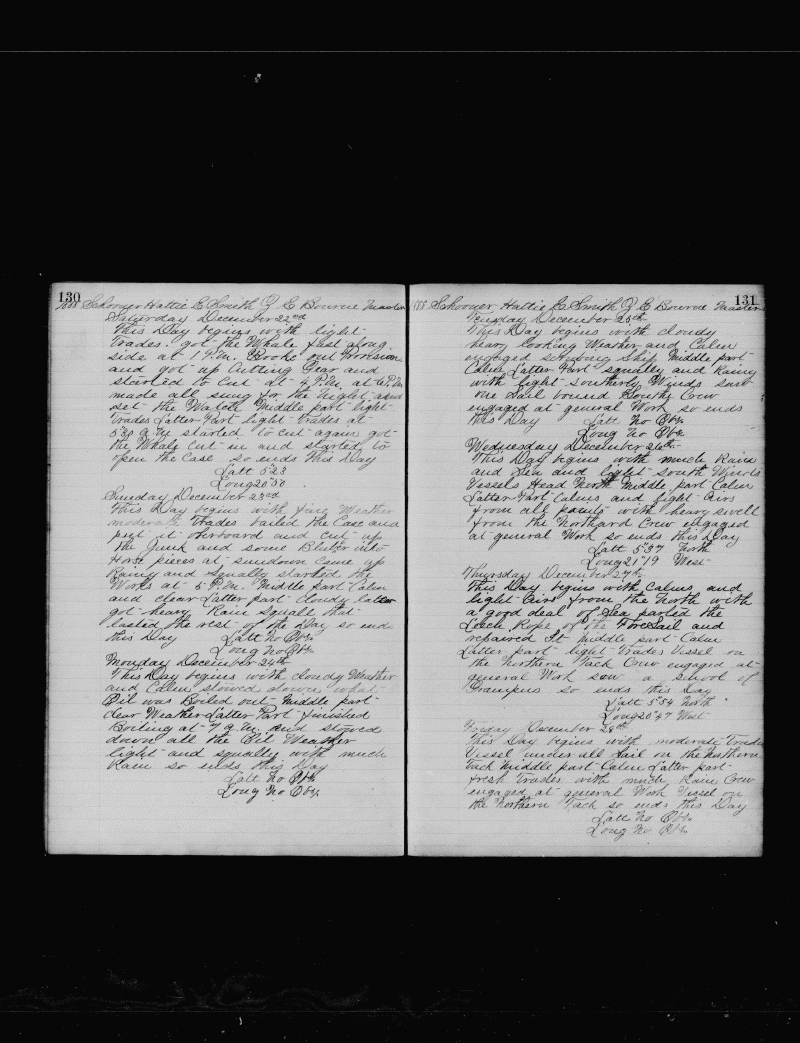 130
1888 Schooner Hattie E Smith Z E Bourne Master
Saturday December 22nd
This Day begins with light
Trades. got the Whale fast along
side at 1 P.M. Broke out Provisions
and got up Cutting Gear and
started to Cut at 4 P.M. at 6 P.M.
made all snug for the night and
set the Watch Middle part light
Trades Latter Part light trades at
5:30 a.m started to cut again got
the Whale Cut in and started to
open the Case so ends this Day
Latt 5"23
Long 20"50
Sunday December 23rd
This Day begins with fine Weather
moderate Trades bailed the Case and
put it overboard and cut up
the Junk and some Blubber into
Horse pieces at sundown came up
Rainy and squally started the
Works at 5 P.M. Middle part Calm
and clear Latter part cloudy Latter
got heavy Rain Squall that
lasted the rest of the Day so ends
this Day Latt No Obs.
Long No Obs.
Monday December 24th
This Day begins with cloudy Weather
and Calm stowed down what
Oil was Boiled out Middle part
clear Weather Latter Part finished
Boiling at 7 a.m. and stowed
down all the Oil Weather
light and squally with much
Rain so ends this Day
Latt No Obs.
Long No Obs.
131
1888 Schooner Hattie E Smith Z E Bourne Master
Tuesday December 25th
This Day begins with cloudy
heavy looking Weather and Calm
engaged scrubing Ship Middle part
Calm Latter Part squally and Rainy
with light Southerly Winds saw
one Sail bound South Crew
engaged at general Work so ends
this Day Latt No Obs.
Long No Obs.
Wednesday December 26th
This Day begins with much Rain
and Sea and light South Winds
Vessels Head North Middle part Calm
Latter Part Calms and light Airs
from all points with heavy swell
from the Northard Crew engaged
at general Work so ends this Day
Latt 5"37 North
Long 21"19 West
Thursday December 27th
This Day begins with Calms and
light Airs from the North with
a good deal of Sea parted the
Leech Rope of the Foresail and
repaired It Middle part Calm
Latter part light Trades Vessel on
the Northern Tack Crew engaged at
general Work saw a school of
Grampus so ends this Day
Latt 5"54 North
Long 20"47 West
Friday December 28th
This Day begins with moderate Trades
Vessel under all Sail on the Northern
Tack Middle part Calm Latter part
fresh Trades with much Rain Crew
engaged at general Work Vessel on
the Northern Tack so ends this Day
Latt No Obs.
Long No Obs.